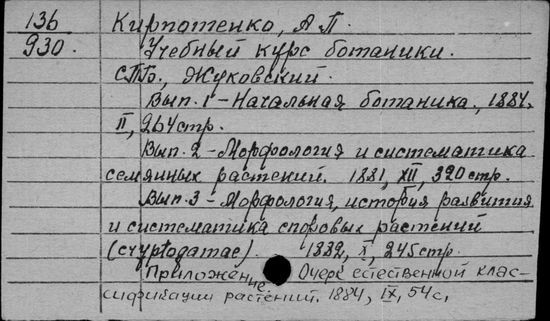 136
930.
Кирпотенко, А П.
Учебный курс ботаники.
СПБ., Жуковский.
Вып. 1 - Начальная ботаника., 1884.
II, 264 стр.
Вып. 2 - Морфология и систематика
семянных растений. 1881, XII, 320 стр.
Вып. 3 - Морфология, история развития
и систематика споровых растений
(cryptogamae). 1882, X, 245 стр.
Приложение Очерк естественной клас-
сификации растений. 1884, IX, 54 с,